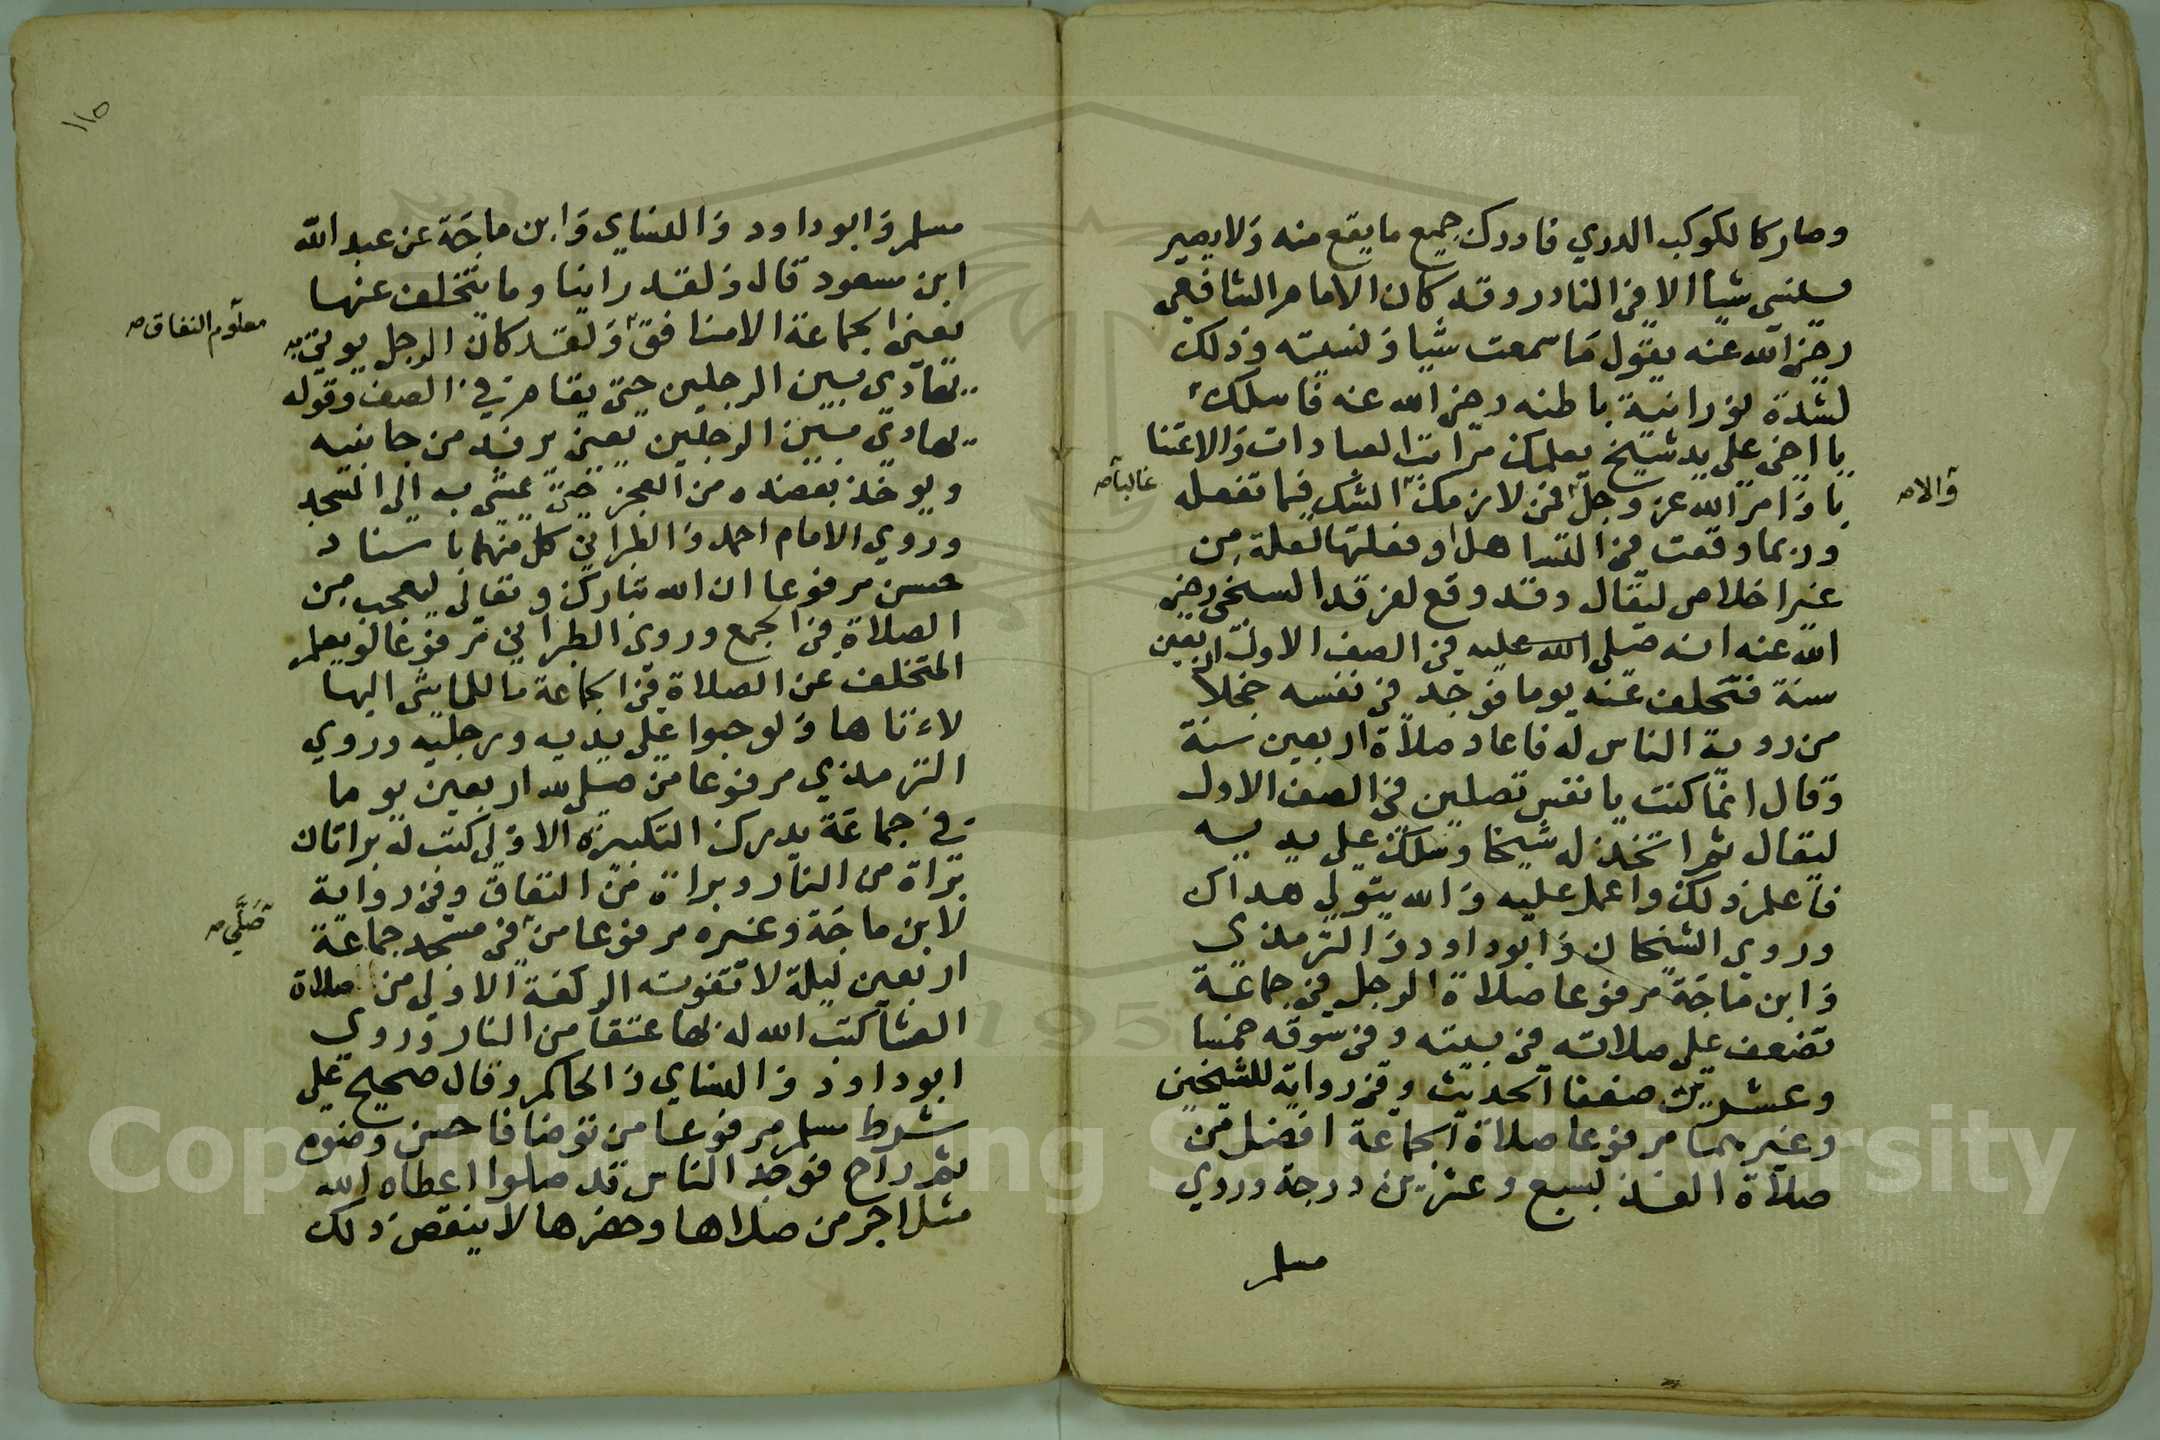 وصار كالكوكب الدري فادرك جميع ما يقع منه ولا يصير
ينسى شيأ الا في النادر وقد كان الامام الشافعي
رضي الله عنه يقول ما سمعت شيا ونسيته وذلك
لشدة نورانية باطنه رضي الله عنه فاسلك
يا اخي على يد شيخ يعلمك مراتب العبادات والاعتنا
باوامر الله عز وجل فمن لازمك الشك فيما تفعله
وربما وقعت في التساهل او فعلتها لعلة من
غير اخلاص ليقال وقد وقع لفرقد السبخي رضي
الله عنه انه صلى الله عليه في الصف الاول اربعين
سنة فتخلف عنه يوما فوجد في نفسه خجلا
من روية الناس له فاعاد صلاة اربعين سنة
وقال انما كنت يا نفس تصلين في الصف الاول
ليقال ثم اتخذ له شيخا وسلك على يديه
فاعلم ذلك واعمل عليه والله يتولى هداك
وروي الشيخان وابوداود والترمذي
وابن ماجة مرفوعا صلاة الرجل في جماعة
تضعف على صلاته في بيته وفي سوقه خمسا
وعشرين ضعفا الحديث وفي رواية للشيخين
وغيرهما مرفوعا صلاة الجماعة افضل من
صلاة الفذ بسبع وعشرين درجة وروي
مسلم
والا صح
غالبا صح
١١٥
مسلم وابوداود والنساي وابن ماجة عن عبد الله
ابن مسعود قال ولقد راينا وما يتخلف عنها
يعني الجماعة الا منافق ولقد كان الرجل يوتى به
يهادي بين الرجلين حتى يقام في الصف وقوله
يهادي بين الرجلين يعني يرفد من جانبيه
ويوخذ بعضده من العجز حتى يمشي به الى المسجد
وروي الامام احمد والطبراني كل منهما باسناد
حسن مرفوعا ان الله تبارك وتعالى ليعجب من
الصلاة في الجمع وروي الطبراني مرفوعا لو يعلم
المتخلف عن الصلاة في الجماعة ما للماشي اليها
لاءتاها ولو حبوا على يديه ورجليه وروي
الترمذي مرفوعا من صلى لله اربعين يوما
في جماعة يدرك التكبيرة الاولى كتب له براتان
براة من النار وبراة من النفاق وفي رواية
لابن ماجة وغيره مرفوعا من في مسجد جماعة
اربعين ليلة لا تفوته الركعة الاولى من صلاة
العشا كتب الله له بها عتقا من النار وروي
ابوداود والنساي والحاكم وقال صحيح على
شرط مسلم مرفوعا من توضا فاحسن وضوه
ثم راح فوجد الناس قد صلوا اعطاه الله
مثل اجر من صلاها وحضرها لا ينقص ذلك
معلوم النفاق صح
صلى صح
Copyright © King Saud University
195